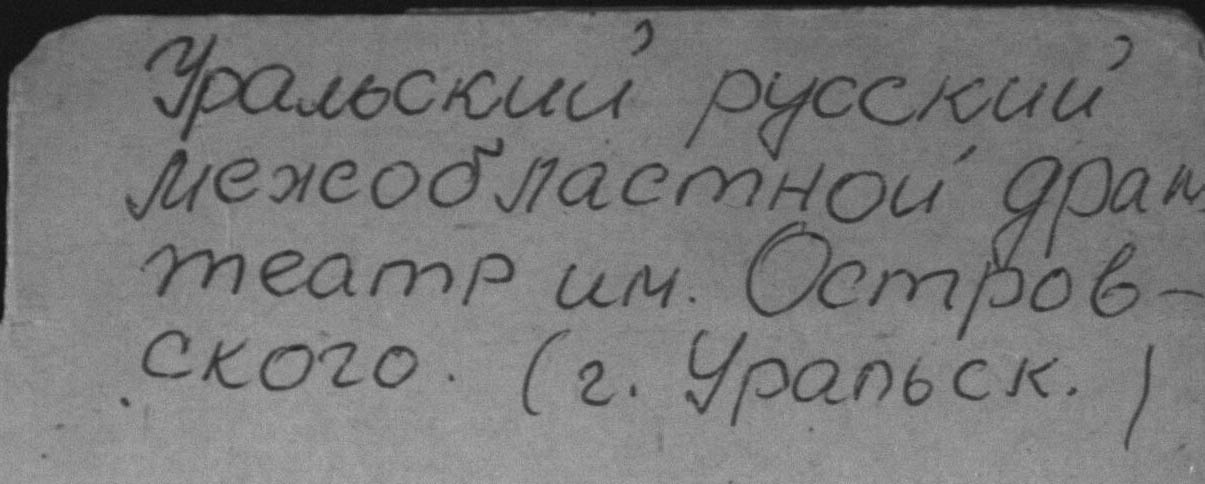 Уральский русский
межобластной драм.
театр им. Остров-
ского. (г. Уральск.)